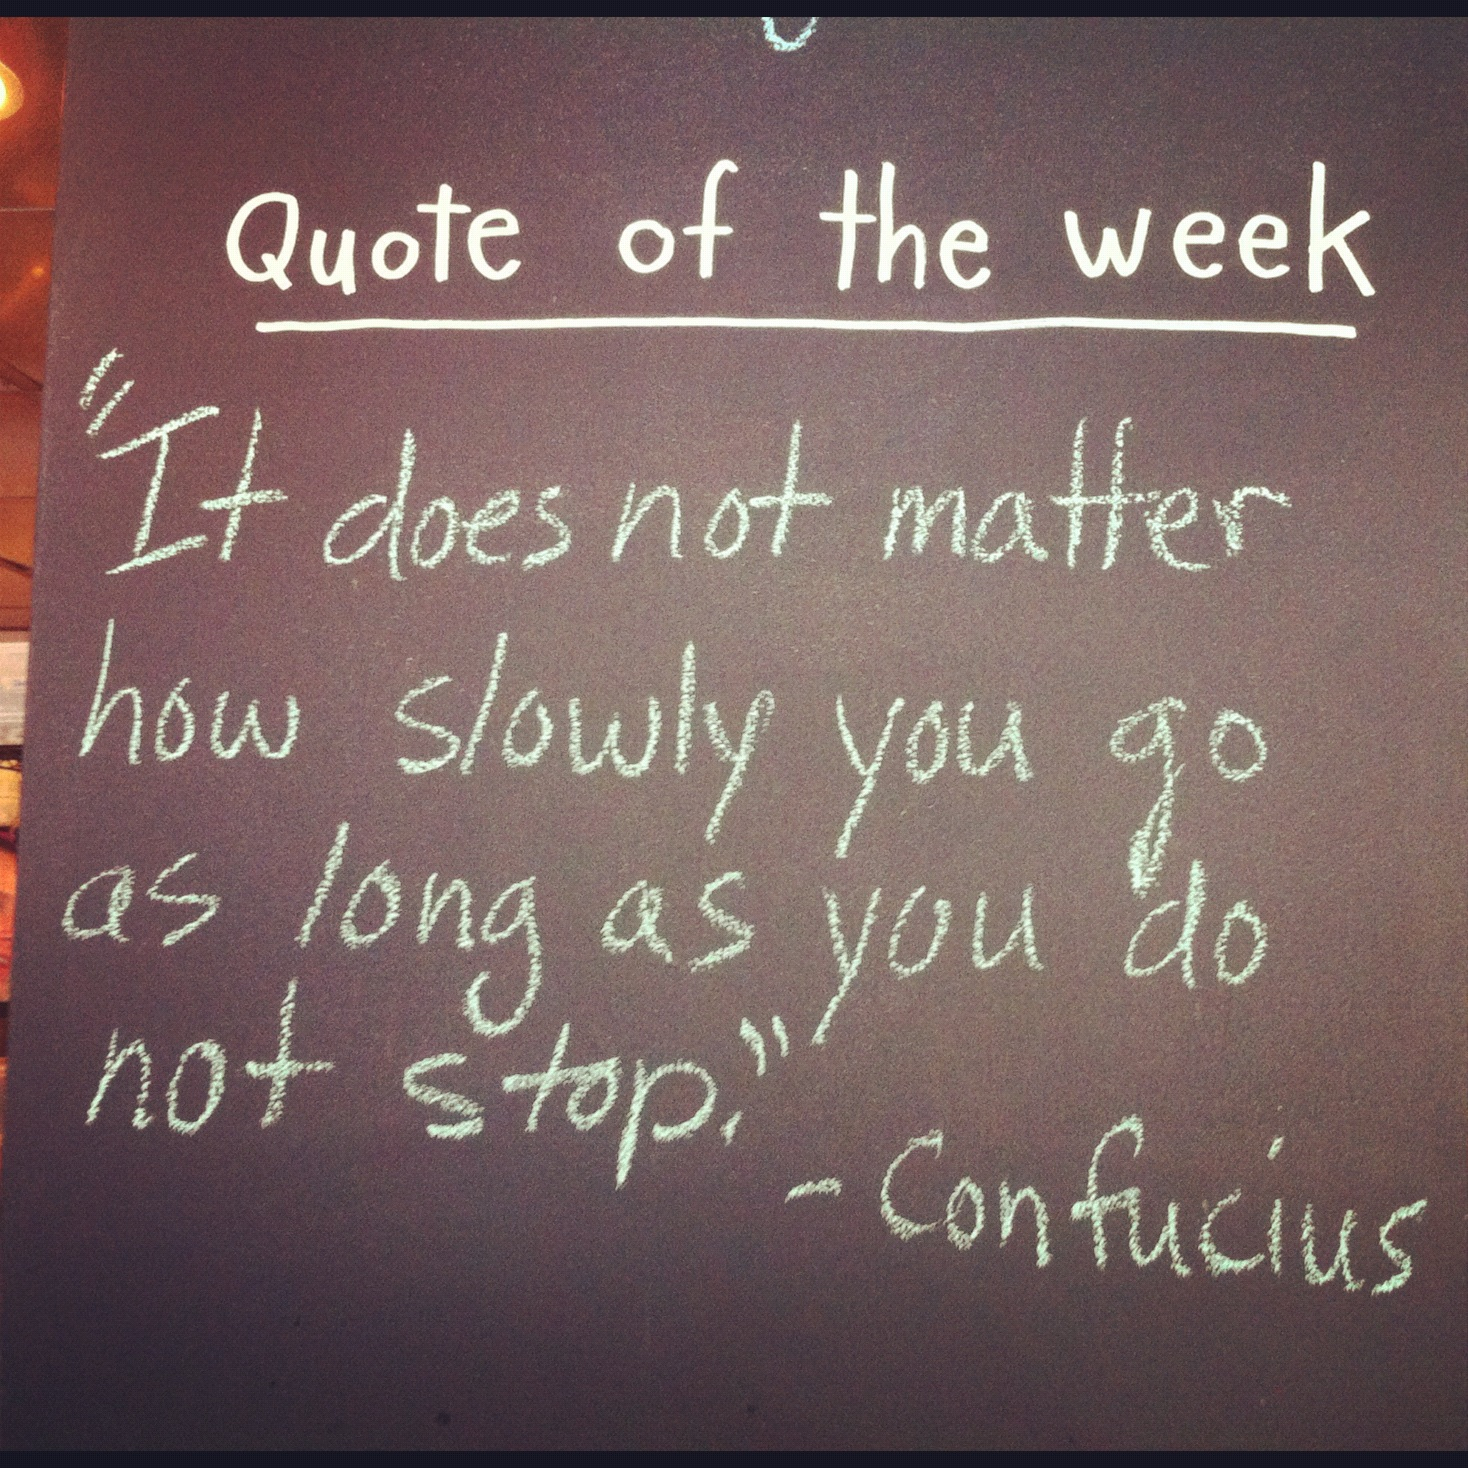 Quote of the week
"It does not matter
how slowly you go
as long as you do
not stop."
- Confucius